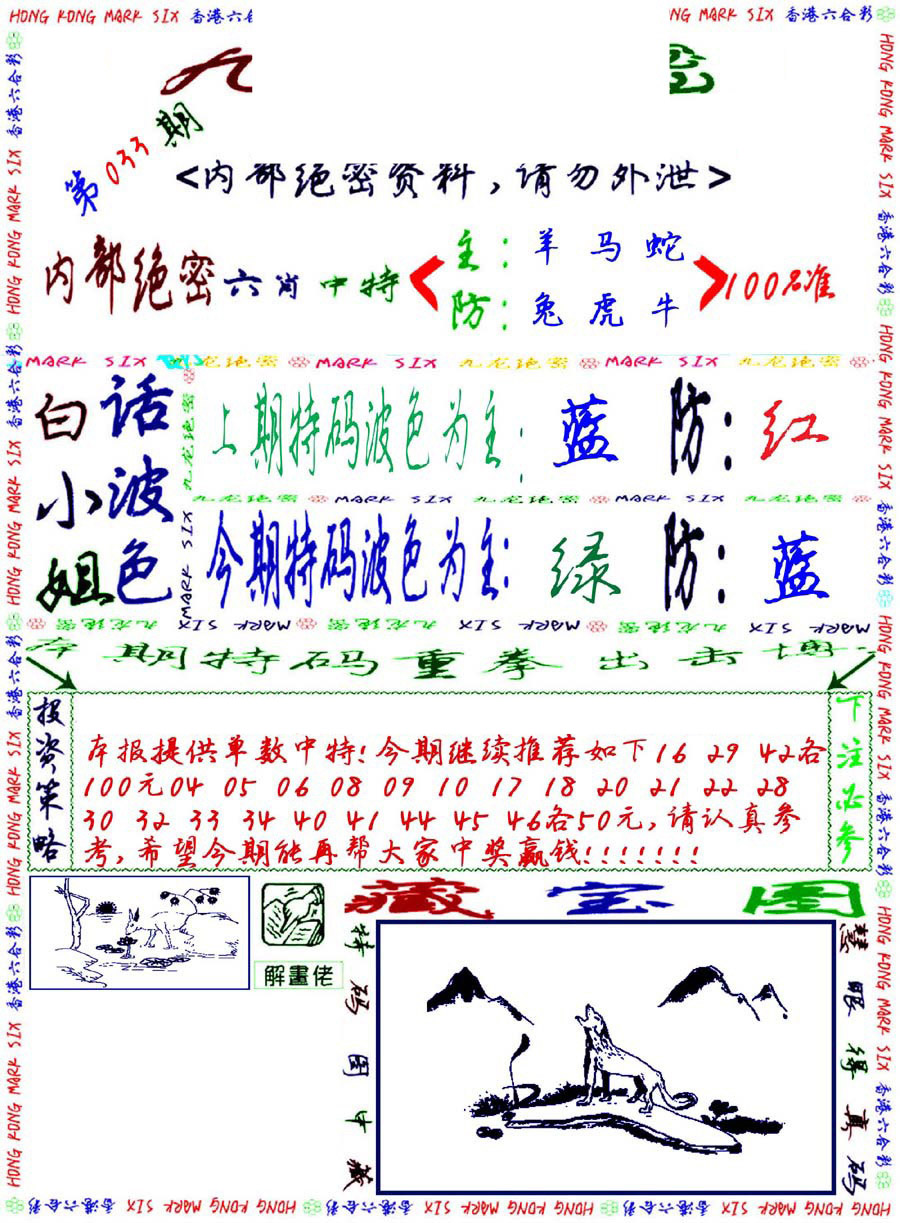 HONG KONG MARK SIX 香港六合彩
九
第033期
<内部绝密资料,请勿外泄>
内部绝密六肖中特
主:羊 马 蛇
防:兔 虎 牛
100%准
MARK SIX 九龙绝密 MARK SIX 九龙绝密 MARK SIX 九龙绝密
白话
小波
姐色
上期特码波色为主: 蓝 防: 红
九龙绝密 MARK SIX 九龙绝密 MARK SIX 九龙绝密
今期特码波色为主: 绿 防: 蓝
MARK SIX 九龙绝密 MARK SIX 九龙绝密 MARK SIX 九龙绝密
期特码重拳出击
投资策略
本报提供单数中特!今期继续推荐如下16 29 42各
100元04 05 06 08 09 10 17 18 20 21 22 28
30 32 33 34 40 41 44 45 46各50元,请认真参
考,希望今期能再帮大家中奖赢钱!!!!!!!
下注必参
解畫佬
藏宝图
特码图中藏
慧眼得真码
HONG KONG MARK SIX 香港六合彩